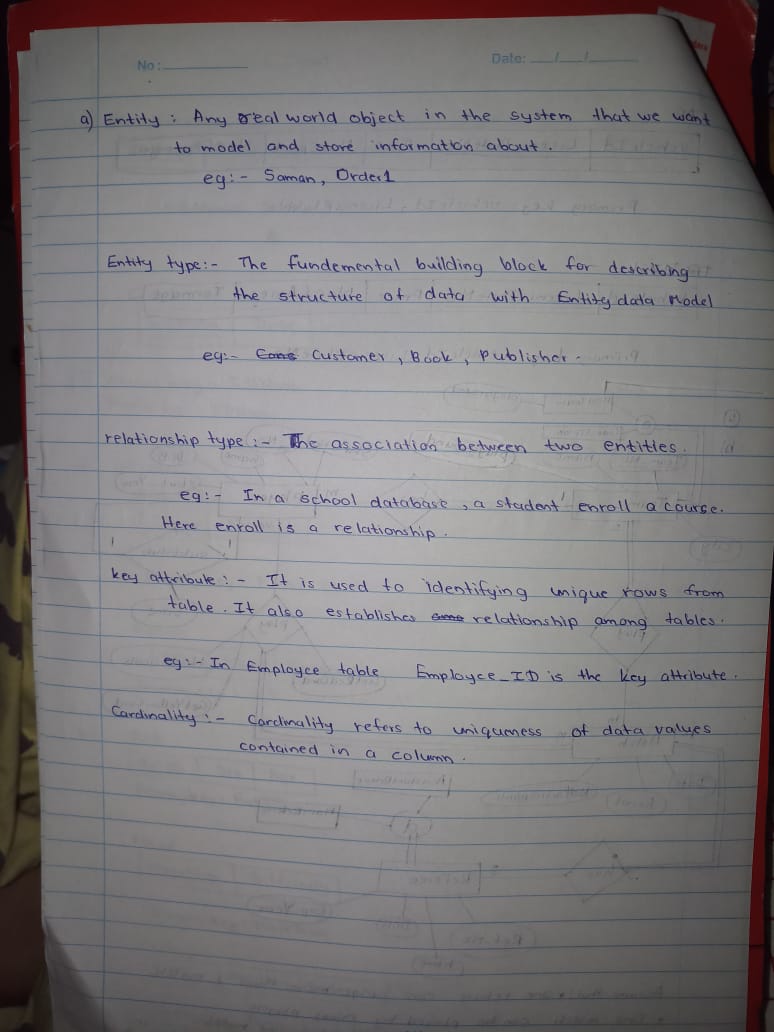 No:
Date: __/__/__
a) Entity : Any real world object in the system that we want
to model and store information about .
eg:- Saman, Order1
Entity type:- The fundemental building block for describing
the structure of data with Entity data Model
eg:- Customer , Book , Publisher .
relationship type :- The association between two entities.
eg:- In a school database , a student enroll a course.
Here enroll is a relationship.
key attribute :- It is used to identifying unique rows from
table. It also establishes relationship among tables.
eg:- In Employee table Employee_ID is the key attribute.
Cardinality :- Cardinality refers to uniqueness of data values
contained in a column.